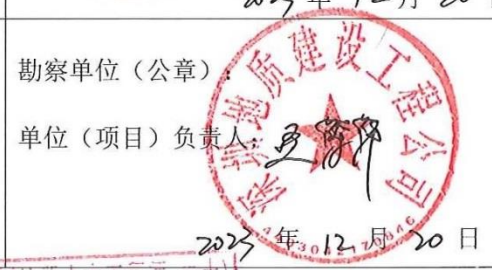 年12月20日
勘察单位（公章）：
单位（项目）负责人：
深圳地质建设工程公司
2023年12月20日